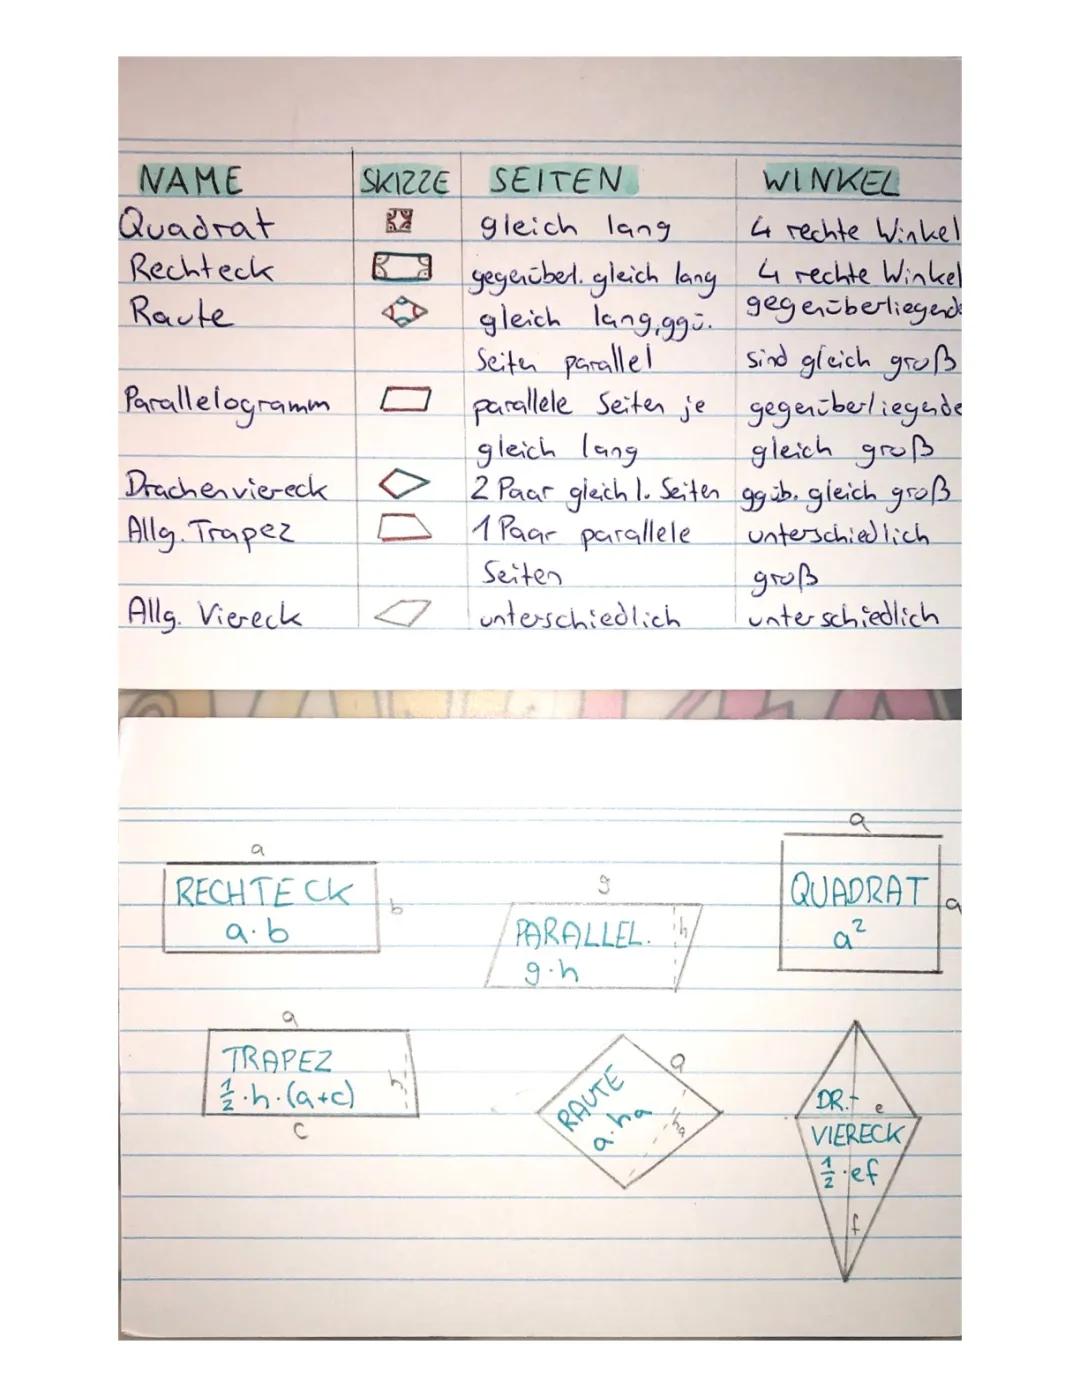 NAME SKIZZE SEITEN WINKEL
Quadrat gleich lang 4 rechte Winkel
Rechteck gegenüberl. gleich lang 4 rechte Winkel
Raute gleich lang, ggü. gegenüberliegende
Seiten parallel sind gleich groß
Parallelogramm parallele Seiten je gegenüberliegende
gleich lang gleich groß
Drachenviereck 2 Paar gleich l. Seiten ggüb. gleich groß
Allg. Trapez 1 Paar parallele unterschiedlich
Seiten groß
Allg. Viereck unterschiedlich unterschiedlich
a
RECHTECK
a·b
b
g
PARALLEL.
h
g·h
a
QUADRAT
a
a²
a
TRAPEZ
½·h·(a+c)
h
c
a
RAUTE
a·ha
ha
DR.-
e
VIERECK
½·ef
f